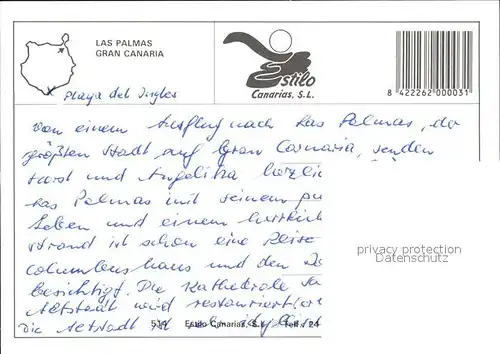 LAS PALMAS
GRAN CANARIA
Estilo
Canarias, S.L.
8 422262 000031
x Playa del Ingles
Von einem Ausflug nach Las Palmas, der
größten Stadt auf Gran Canaria, senden
Horst und Angelika herzlic
Las Palmas mit seinem pu
Leben und einem herrlich
strand ist schon eine Reise
Columbushaus und den Do
besichtigt. Die Kathedrale
Altstadt wird restauriert
Die Altstadt ist sehr idyllis
privacy protection
Datenschutz
Estilo Canarias, S.L. Telf.: 24